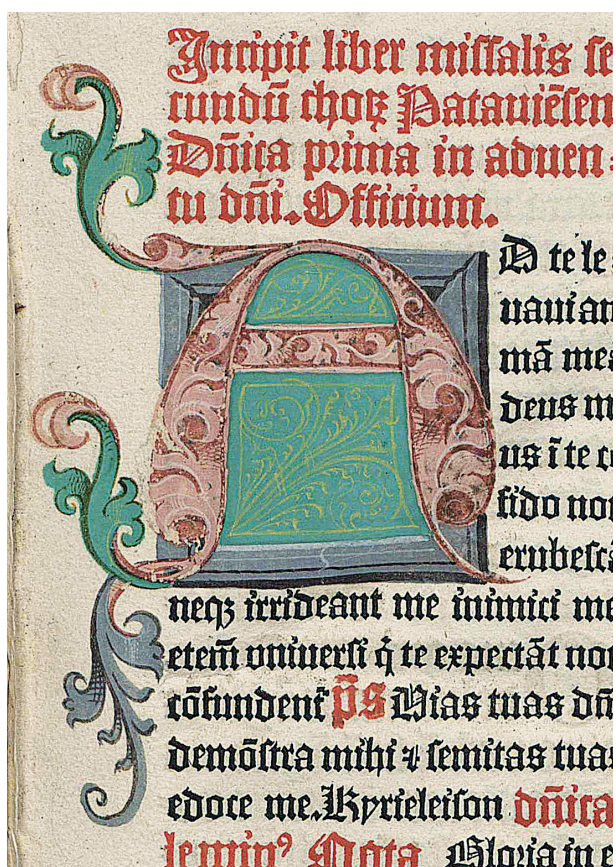 Incipit liber missalis se
cundũ chorꝫ Patauiẽsem
Dñica prima in aduen⸗
tu dñi. Officium.
AD te le
uaui an
mã mea
deus m
us ĩ te cõ
fido non
erubescã
neqꝫ irrideant me inimici me
etem̃ vniuersi q̃ te expectãt non
cõfundent᷒ p̃s Vias tuas dñ
demõstra mihi ⁊ semitas tuas
edoce me. Kyrieleison dñica
Nota Gloria in e